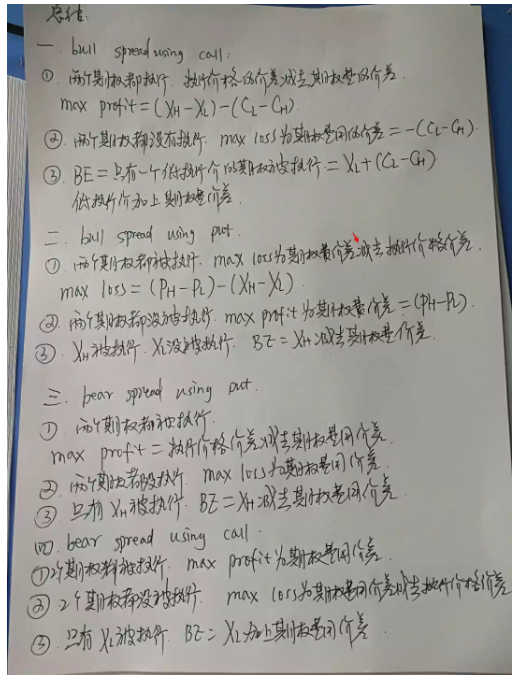 总结:
一. bull spread using call:
① 两个期权都执行. 执行价格的价差减去期权费的价差.
max profit = (XH-XL)-(CL-CH)
② 两个期权都没有执行. max loss为期权费用的价差 = -(CL-CH).
③ BE = 只有一个低执行价的期权被执行. = XL+(CL-CH)
低执行价加上期权费价差.
二. bull spread using put.
① 两个期权都被执行. max loss为期权费价差减去执行价格价差.
max loss = (PH-PL)-(XH-XL)
② 两个期权都没被执行. max profit为期权费价差 = (PH-PL).
③ XH被执行. XL没被执行. BE = XH减去期权费价差.
三. bear spread using put.
① 两个期权都被执行.
max profit = 执行价格价差减去期权费用价差.
② 两个期权都没执行. max loss为期权费用价差.
③ 只有XH被执行. BE = XH减去期权费用价差.
四. bear spread using call.
① 2个期权都被执行. max profit为期权费用价差.
② 2个期权都没被执行. max loss为期权费用价差减去执行价格价差
③ 只有XL被执行. BE = XL加上期权费用价差.